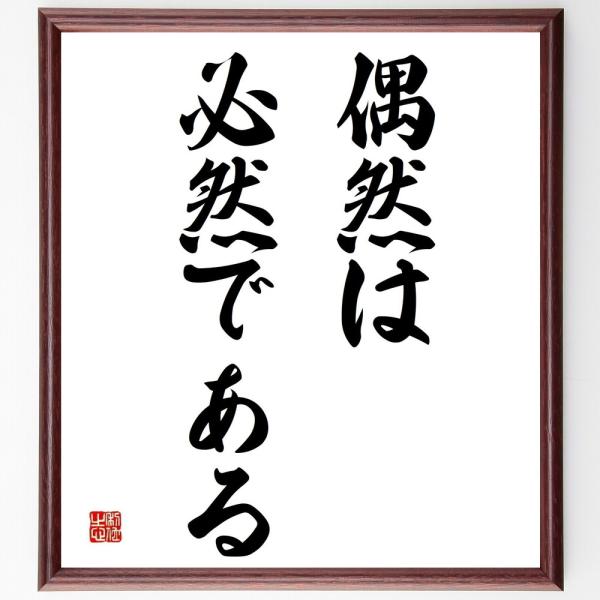 偶然は
必然である